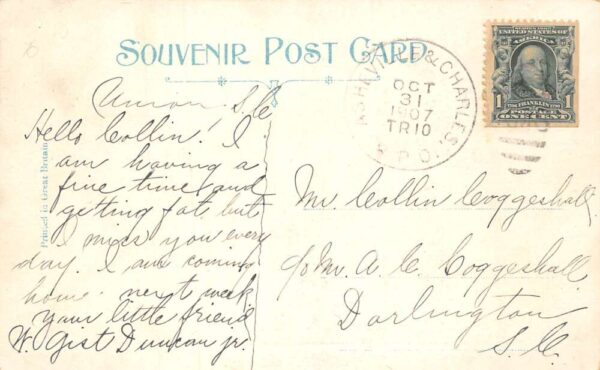 SOUVENIR POST CARD
Union, S.C.
Hello Collin! I
am having a
fine time and
getting fat but
I miss you every
day. I am coming
home next week
your little friend
W. Gist Duncan jr.
Printed in Great Britain
ASHEVILLE & CHARLES.
OCT
31
1907
TR10
R.P.O.
SERIES 1902
UNITED STATES OF
AMERICA
1706 FRANKLIN 1790
1 POSTAGE 1
ONE CENT
Mr. Collin Coggeshall
c/o Mr. A. C. Coggeshall
Darlington
S.C.